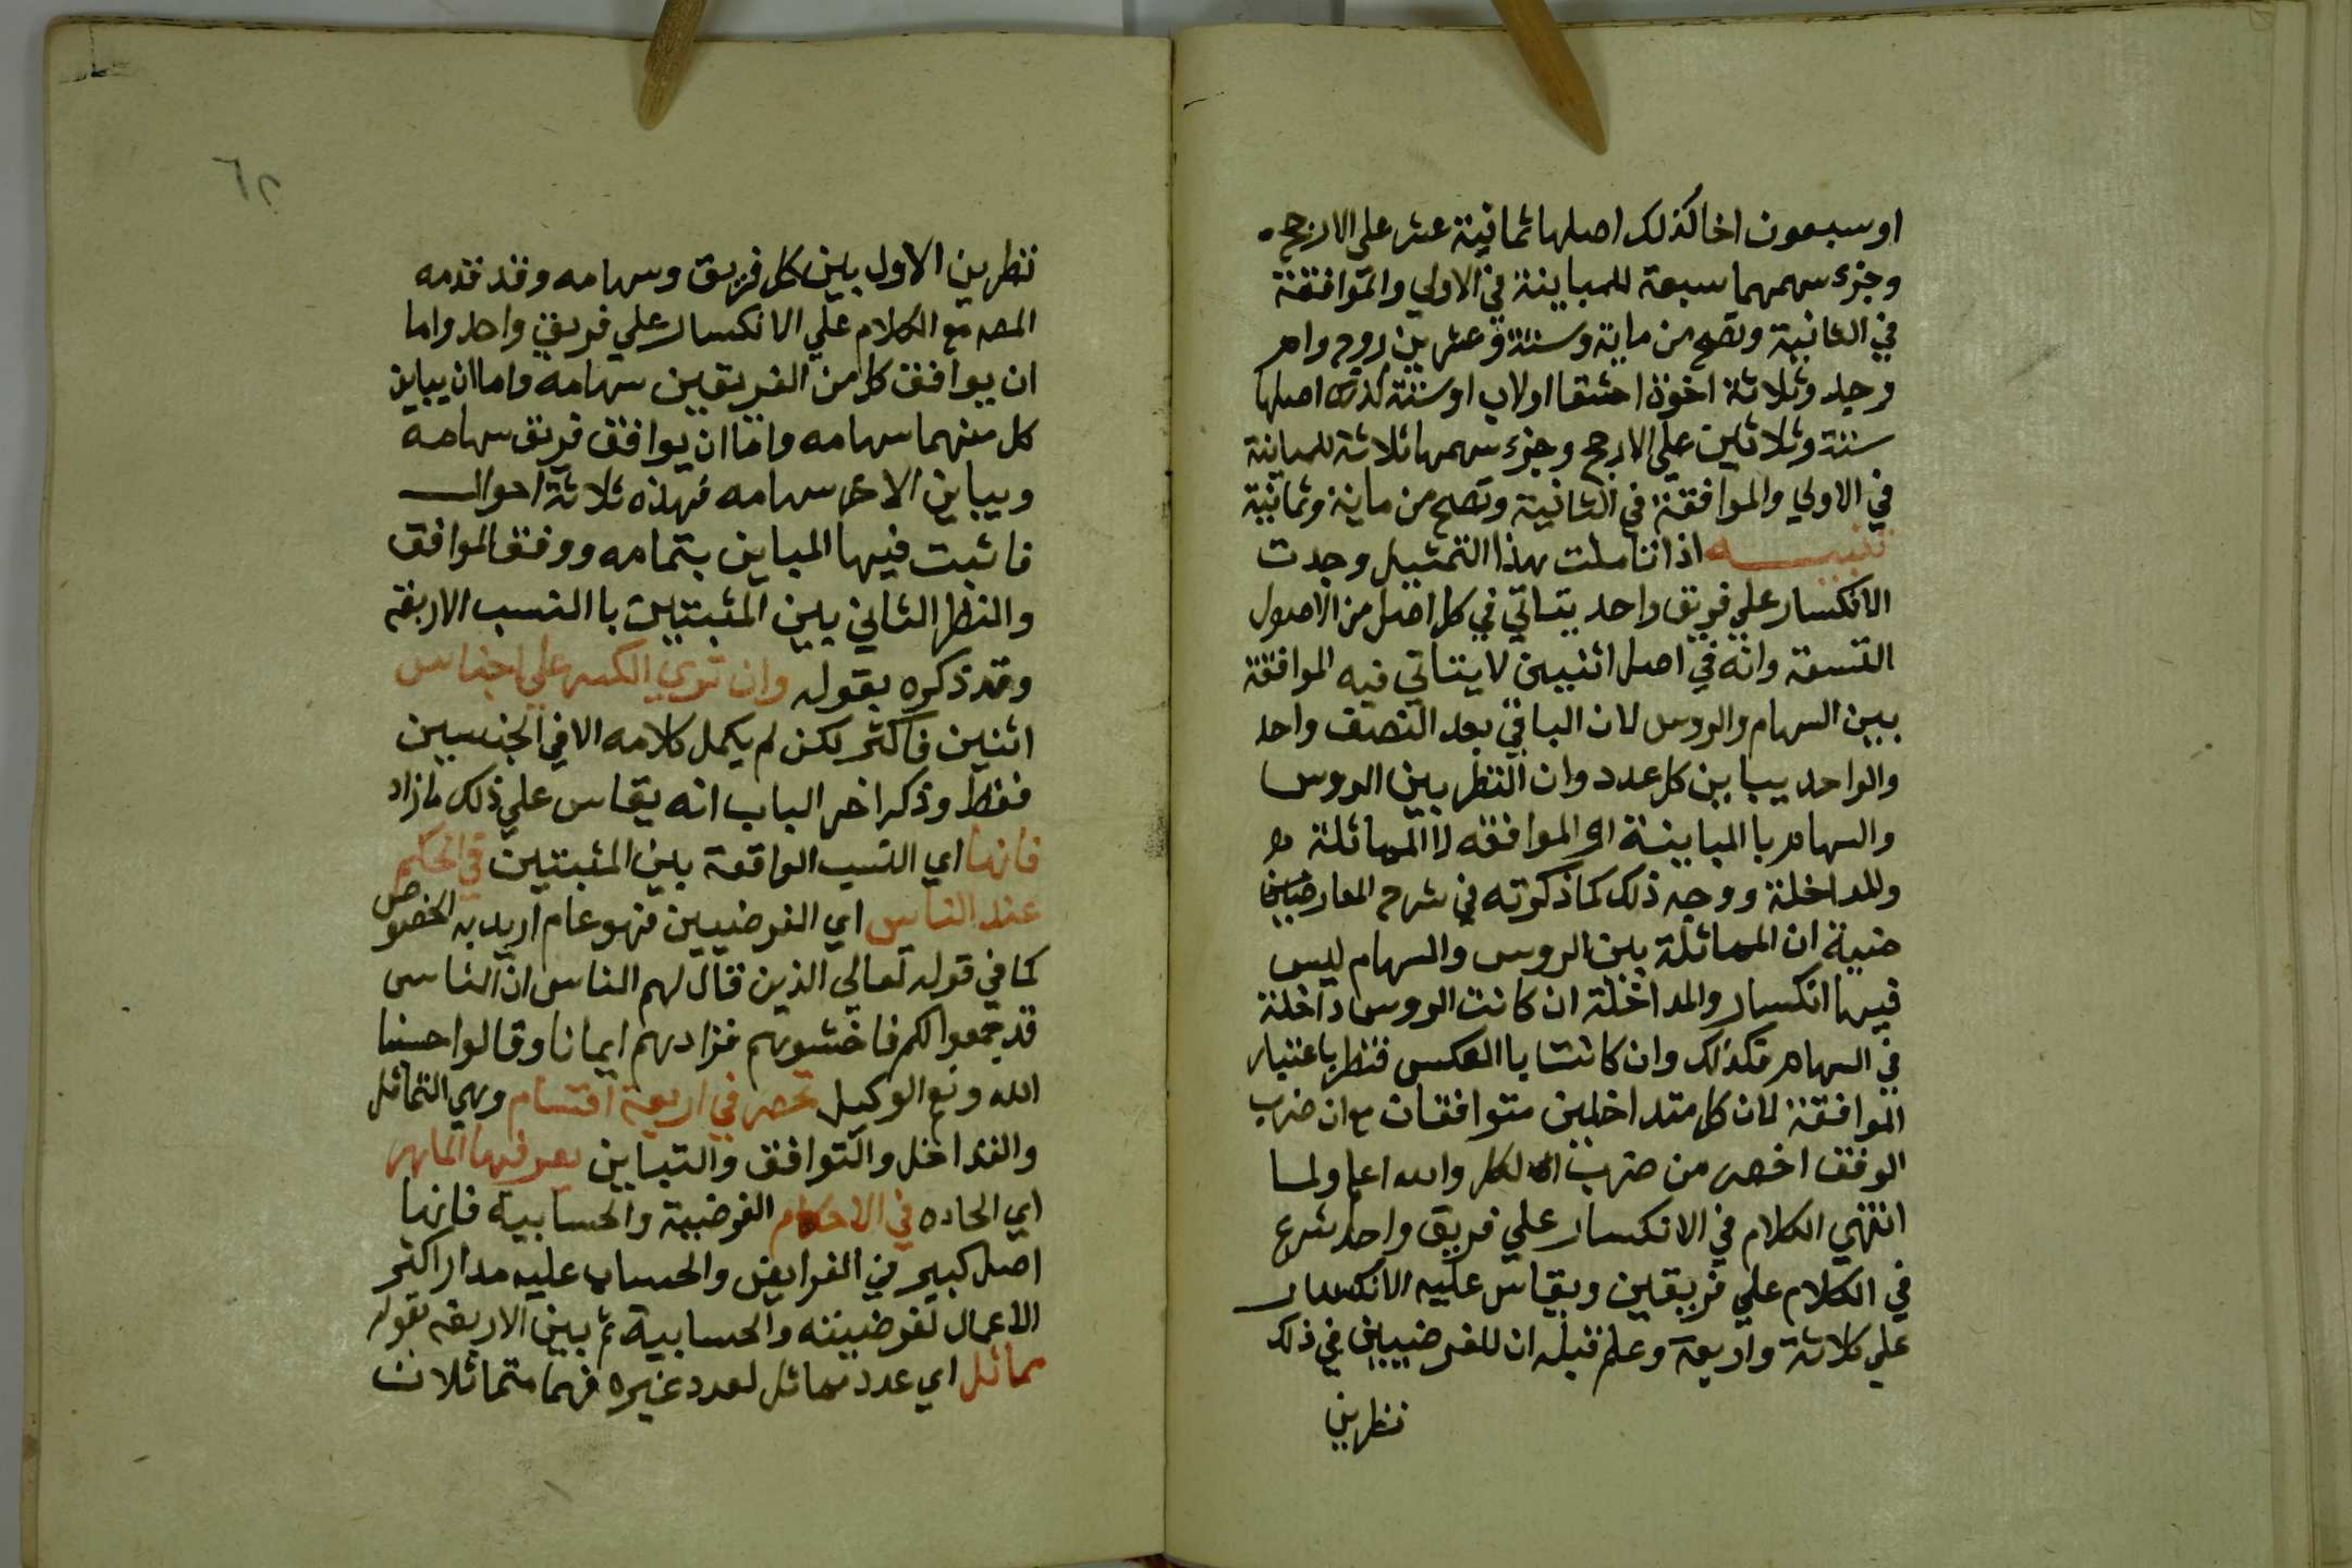 او سبعون اخا كذلك اصلها ثمانية عشر علي الارجح
وجزء سهمهما سبعة للمباينة في الاولي والموافقة
في الثانية وتصح من ماية وستة وعشرين زوج وام
وجد وثلاثة اخوة اشقا اولاب او ستة كذلك اصلها
ستة وثلاثين علي الارجح وجزء سهمها ثلاثة للمباينة
في الاولي والموافقة في الثانية وتصح من ماية وثمانية
تنبيه اذا تاملت هذا التمثيل وجدت
الانكسار علي فريق واحد يتاتي في كل اصل من الاصول
التسعة وانه في اصل اثنين لا يتاتي فيه الموافقة
بين السهام والروس لان الباقي بعد النصف واحد
والواحد يباين كل عدد وان النظر بين الروس
والسهام با المباينة او الموافقه لا المماثلة
وللمداخلة ووجه ذلك كما ذكرته في شرح المعارضين
ضية ان المماثلة بين الروس والسهام ليس
فيها انكسار والمداخلة ان كانت الروس داخلة
في السهام فكذلك وان كانت با العكس فنظر باعتبار
الموافقة لان كل متداخلين متوافقان مع ان ضرب
الوفق اخصر من ضرب الكل والله اعلم ولما
انتهي الكلام في الانكسار علي فريق واحد شرع
في الكلام علي فريقين ويقاس عليه الانكسار
علي ثلاثة واربعة وعلم قبله ان للفرضيين في ذلك
نظرين
٦٢
نظرين الاول بين كل فريق وسهامه وقد قدمه
المصه مع الكلام علي الانكسار علي فريق واحد واما
ان يوافق كل من الفريقين سهامه واما ان يباين
كل منهما سهامه واما ان يوافق فريق سهامه
ويباين الاخر سهامه فهذه ثلاثة احوال
فاثبت فيها المباين بتمامه ووفق الموافق
والنظر الثاني بين المثبتين با النسب الاربعة
وقد ذكره بقوله وان تري الكسر علي اجناس
اثنين فاكثر لكن لم يكمل كلامه الا في الجنسين
فقط وذكر اخر الباب انه يقاس علي ذلك ما زاد
فانها اي النسب الواقعة بين المثبتين في الحكم
عند الناس اي الفرضيين فهو عام اريد به الخصوص
كما في قوله تعالي الذين قال لهم الناس ان الناس
قد جمعوا لكم فاخشوهم فزادهم ايمانا وقالوا حسبنا
الله ونعم الوكيل تحصر في اربعة اقسام وهي التماثل
والتداخل والتوافق والتباين يعرفها الماهر
اي الحاده في الاحكام الفرضية والحسابية فانها
اصل كبير في الفرايض والحساب عليه مدار اكثر
الاعمال الفرضية والحسابية ثم بين الاربعة بقوله
مماثل اي عدد مماثل لعدد غيره فهما متماثلان